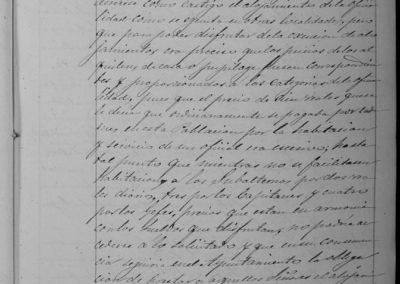 como castigo el alojamiento de la ofici
lidad como se efectua en otras localidades, pero
que para poder disfrutar de la exencion de alo
jamientos era preciso que los precios de los al
quileres de casa o pupilage fuesen correspondien
tes y proporcionados a las categorias de la ofici
lidad, pues que el precio de cinco reales que se
le decia que ordinariamente se pagaba por
en esta Poblacion por la habitacion
y servicio de un oficial era excesivo; hasta
tal punto que mientras no se facilitasen
habitacion, a los Subalternos por dos rea
les diarios, tres por los Capitanes y cuatro
por los Gefes, precios que estan en armonia
con los sueldos que disfrutan, no podria ac
cederse a lo solicitado y que en su consecuen
cia seguiria en el Ayuntamiento la obliga
cion de prestar a aquellos el aloja